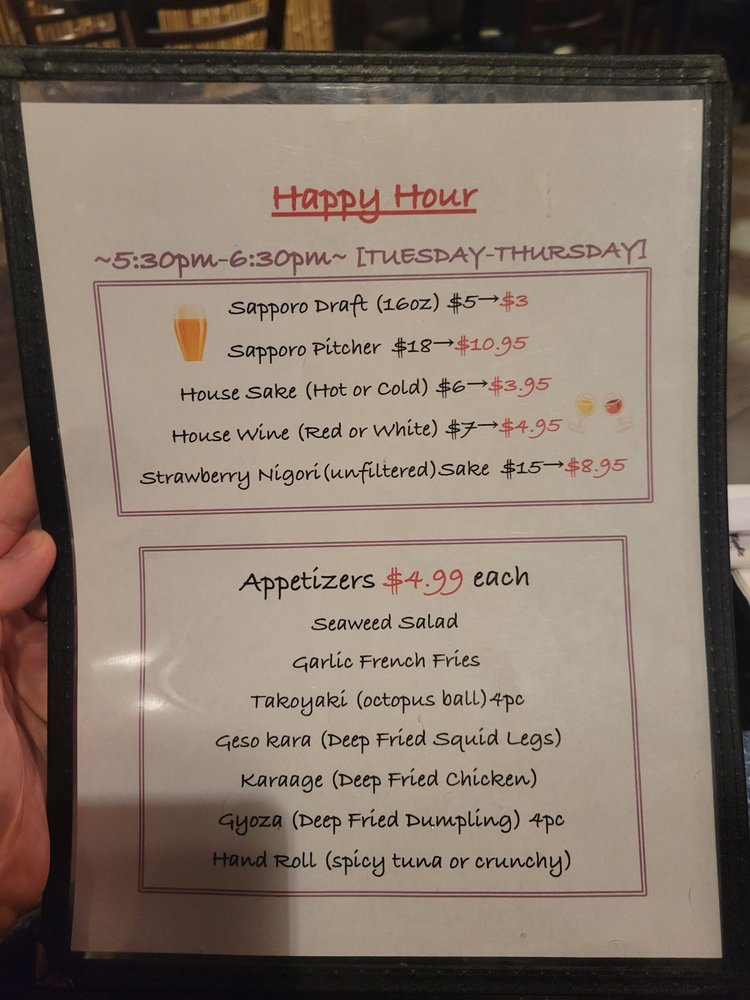 Happy Hour
~5:30pm-6:30pm~ [TUESDAY-THURSDAY]
Sapporo Draft (16oz) $5→$3
Sapporo Pitcher $18→$10.95
House Sake (Hot or Cold) $6→$3.95
House Wine (Red or White) $7→$4.95
Strawberry Nigori(unfiltered)Sake $15→$8.95
Appetizers $4.99 each
Seaweed Salad
Garlic French Fries
Takoyaki (octopus ball)4pc
Geso kara (Deep Fried Squid Legs)
Karaage (Deep Fried Chicken)
Gyoza (Deep Fried Dumpling) 4pc
Hand Roll (spicy tuna or crunchy)